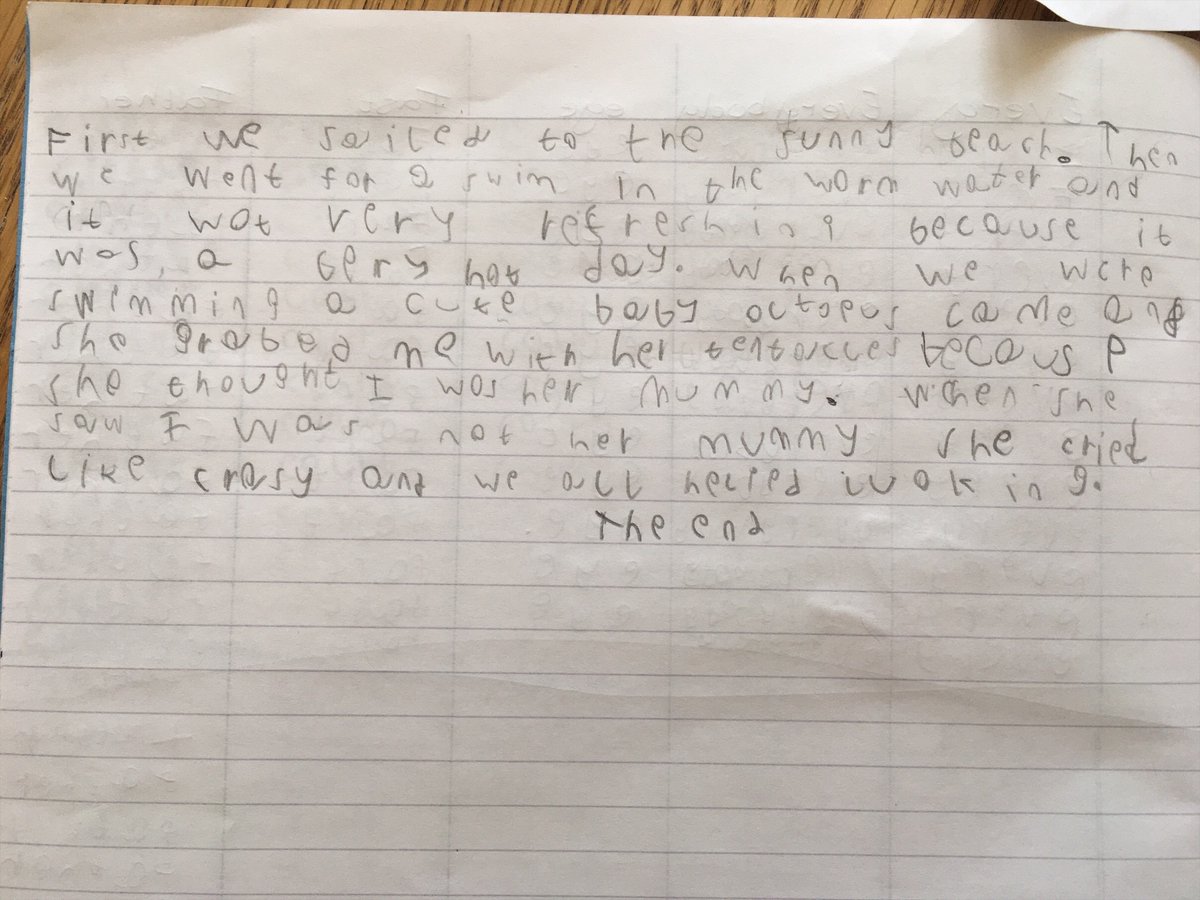 First we sailed to the sunny beach. Then
we went for a swim in the worm water and
it wot very refreshing because it
was, a bery hot day. when we were
swimming a cute baby octopus came and
she grabed me with her tentacles because
she thought I was her mummy. when she
saw I was not her mummy she cried
like crasy and we all helped
The end